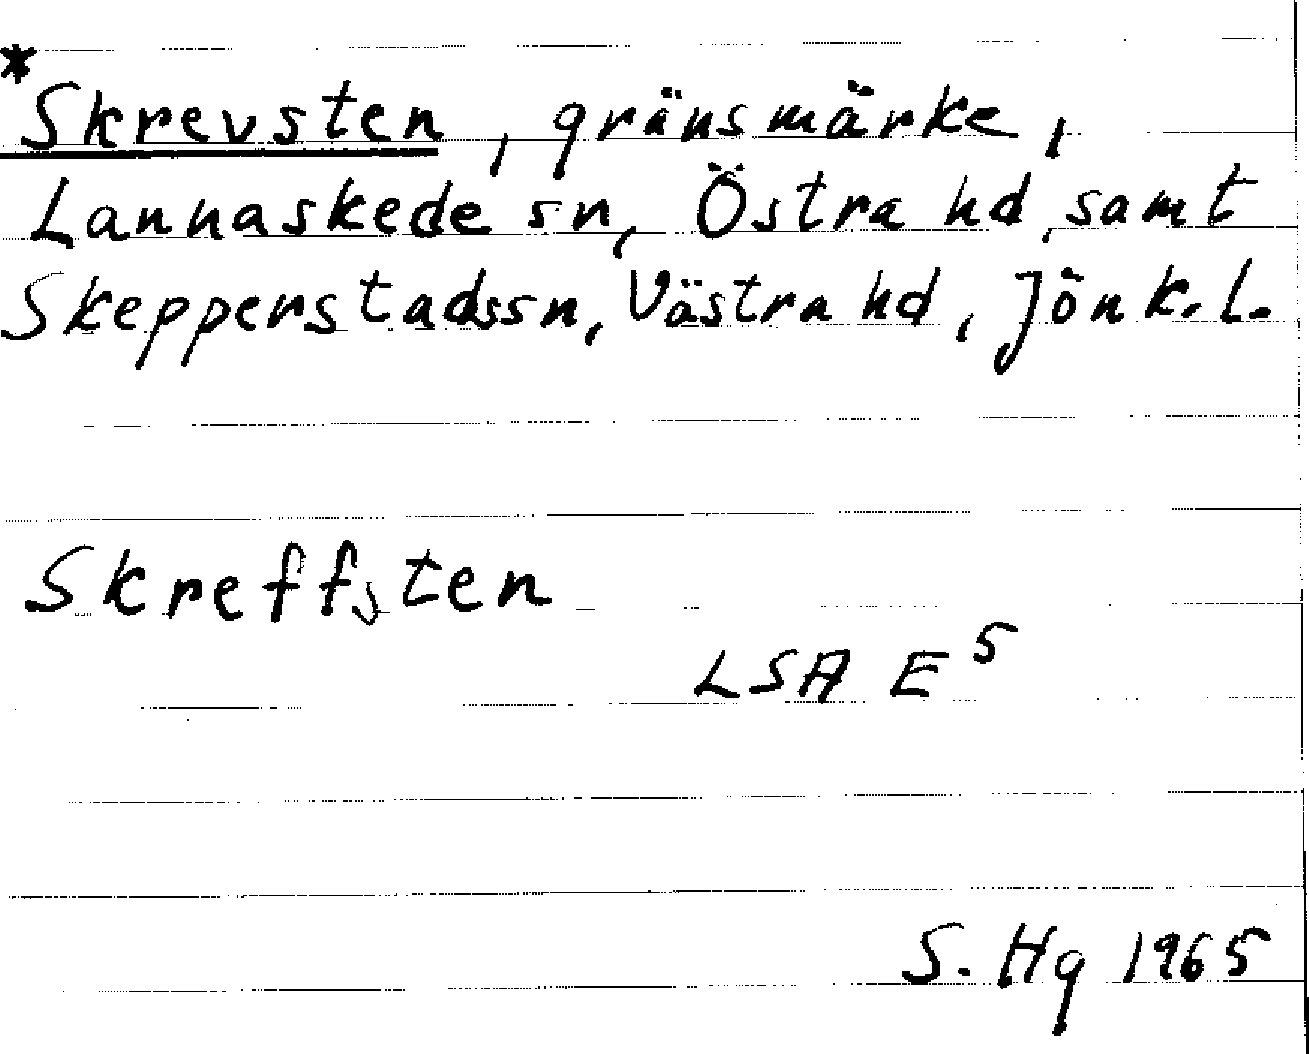 *Skrevsten, gränsmärke,
Lannaskede sn, Östra hd, samt
Skepperstadssn, Västra hd, Jönk. l.
Skreffsten
LSA E⁵
S. Hg 1965